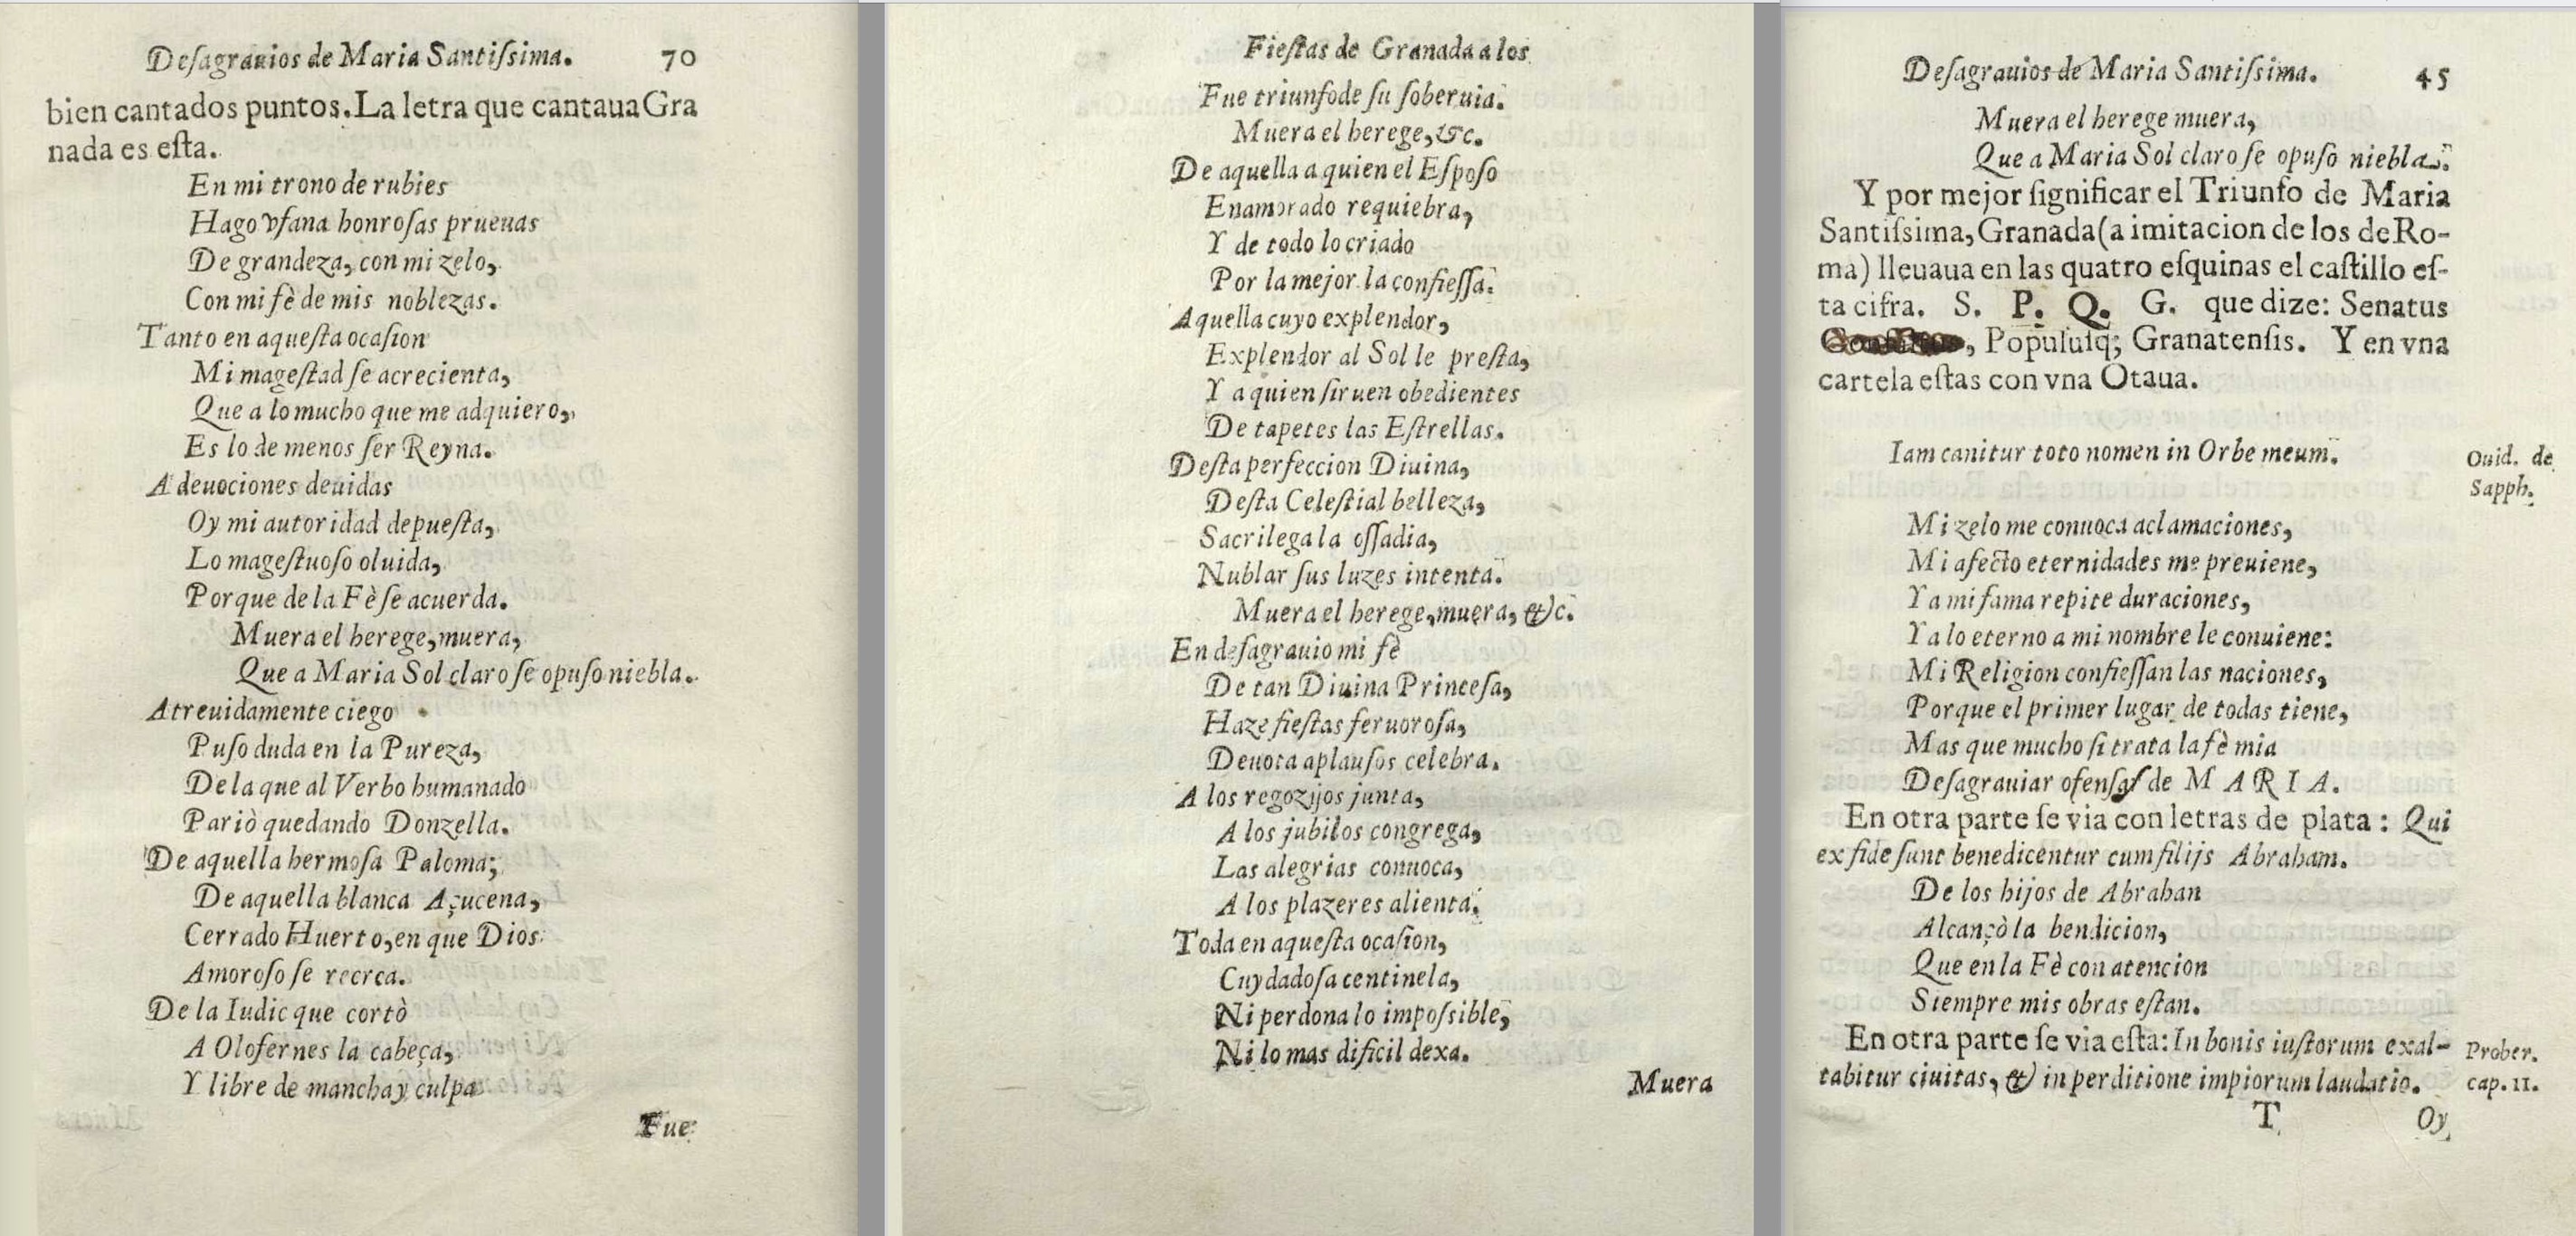 Desagrauios de Maria Santissima. 70
bien cantados puntos. La letra que cantaua Gra
nada es esta.
En mi trono de rubies
Hago vfana honrosas prueuas
De grandeza, con mi zelo,
Con mi fè de mis noblezas.
Tanto en aquesta ocasion
Mi magestad se acrecienta,
Que a lo mucho que me adquiero,
Es lo de menos ser Reyna.
A deuociones deuidas
Oy mi autoridad depuesta,
Lo magestuoso oluida,
Porque de la Fè se acuerda.
Muera el herege, muera,
Que a Maria Sol claro se opuso niebla.
Atreuidamente ciego
Puso duda en la Pureza,
De la que al Verbo humanado
Pariò quedando Donzella.
De aquella hermosa Paloma;
De aquella blanca Açucena,
Cerrado Huerto, en que Dios
Amoroso se recrea.
De la Iudic que cortò
A Olofernes la cabeça,
Y libre de mancha y culpa
Fue
Fiestas de Granada a los
Fue triunfo de su soberuia.
Muera el herege, &c.
De aquella a quien el Esposo
Enamorado requiebra,
Y de todo lo criado
Por la mejor la confiessa.
Aquella cuyo explendor,
Explendor al Sol le presta,
Y a quien siruen obedientes
De tapetes las Estrellas.
Desta perfeccion Diuina,
Desta Celestial belleza,
Sacrilega la ossadia,
Nublar sus luzes intenta.
Muera el herege, muera, &c.
En desagrauio mi fè
De tan Diuina Princesa,
Haze fiestas feruorosa,
Deuota aplausos celebra.
A los regozijos junta,
A los jubilos congrega,
Las alegrias conuoca,
A los plazeres alienta.
Toda en aquesta ocasion,
Cuydadosa centinela,
Ni perdona lo impossible,
Ni lo mas dificil dexa.
Muera
Desagrauios de Maria Santissima. 45
Muera el herege muera,
Que a Maria Sol claro se opuso niebla.
Y por mejor significar el Triunfo de Maria
Santissima, Granada (a imitacion de los de Ro-
ma) lleuaua en las quatro esquinas el castillo es-
ta cifra. S. P. Q. G. que dize: Senatus
, Populusq; Granatensis. Y en vna
cartela estas con vna Otaua.
Iam canitur toto nomen in Orbe meum.
Ouid. de
Sapph.
Mi zelo me conuoca aclamaciones,
Mi afecto eternidades me preuiene,
Y a mi fama repite duraciones,
Y a lo eterno a mi nombre le conuiene:
Mi Religion confiessan las naciones,
Porque el primer lugar de todas tiene,
Mas que mucho si trata la fè mia
Desagrauiar ofensas de MARIA.
En otra parte se via con letras de plata: Qui
ex fide sunt benedicentur cum filijs Abraham.
De los hijos de Abrahan
Alcançò la bendicion,
Que en la Fè con atencion
Siempre mis obras estan.
En otra parte se via esta: In bonis iustorum exal-
tabitur ciuitas, & in perditione impiorum laudatio.
Prober.
cap. 11.
T Oy